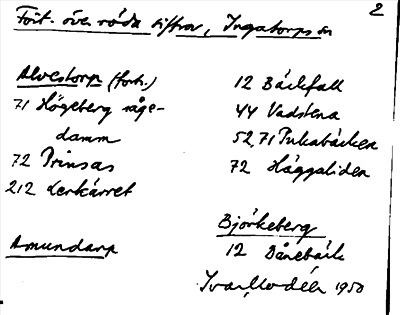 Fört. över röda siffror, Ingatorps sn
2
Alvestorp (forts.)
71 Högeberg såge-
damm
72 Prinsas
212 Lerkärret
Amundarp
12 Bäckfall
44 Vadstena
52, 71 Pukabäcken
72 Häggaliden
Björkeberg
12 Dånebäck
Ivar Modéer 1950